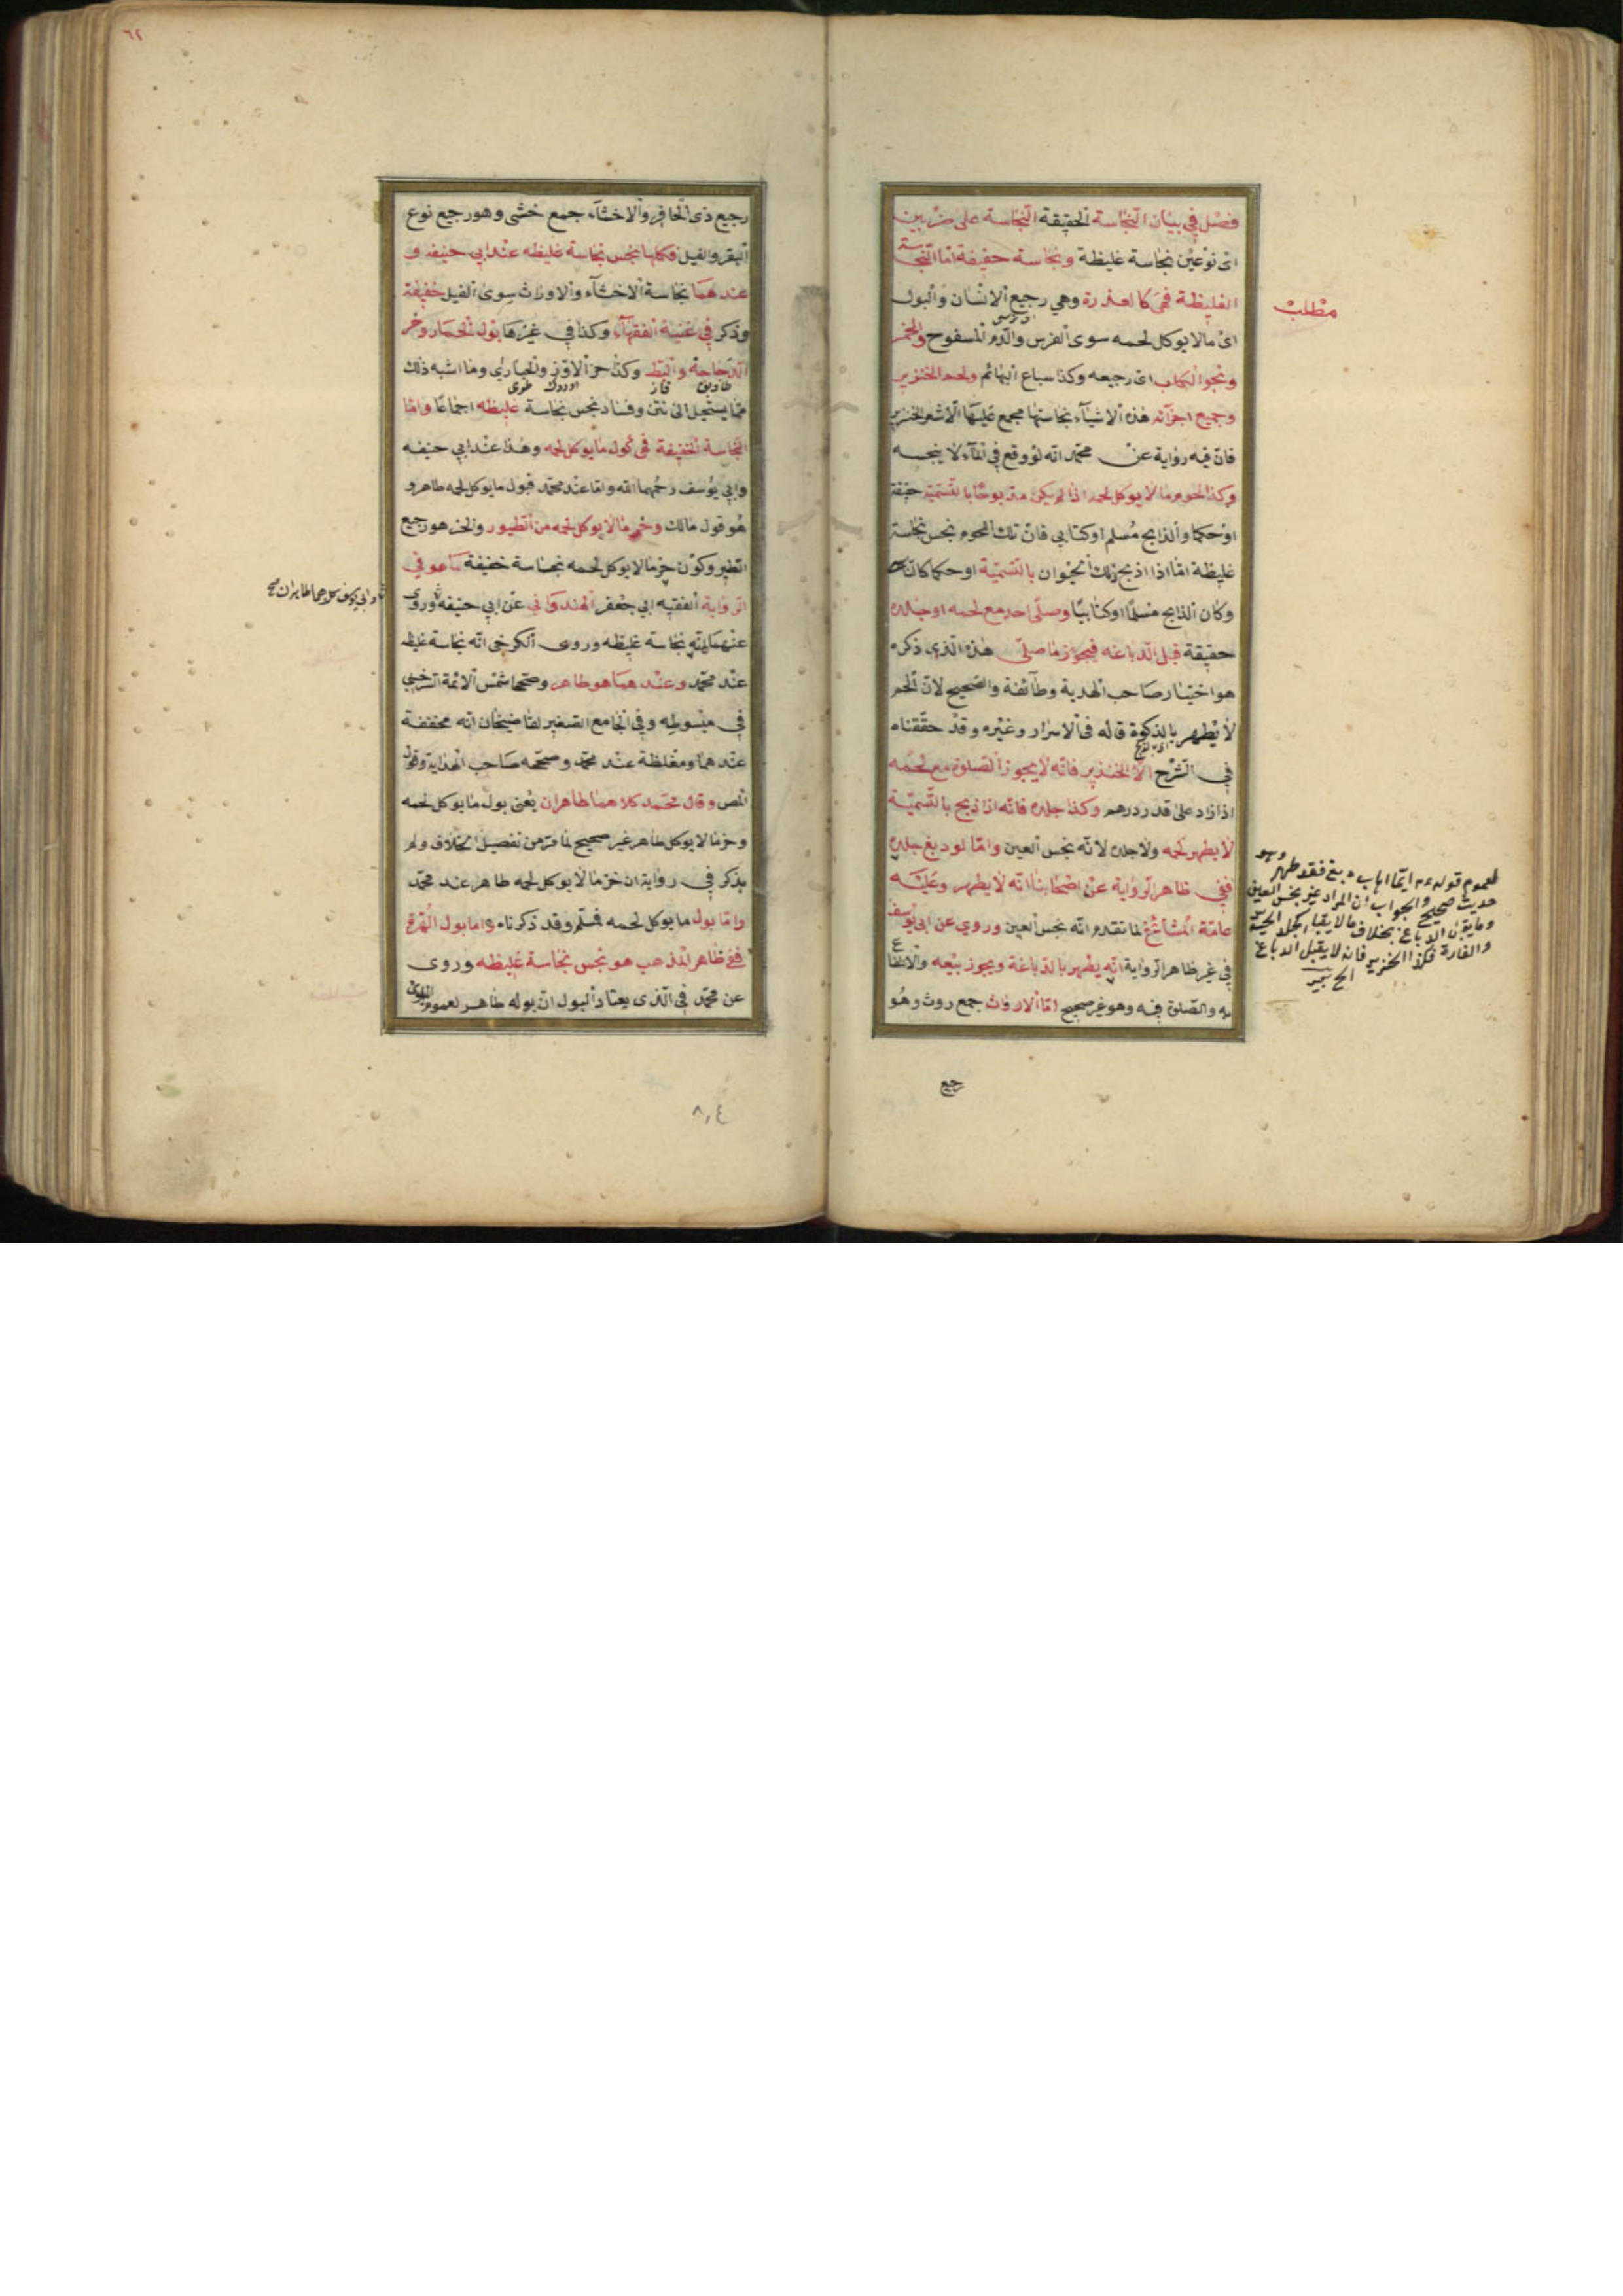 فصل في بيان النجاسة الحقيقة النجاسة على ضربين
اى نوعين نجاسة غليظة ونجاسة خفيفة اما النجاسة
الغليظة فهى كالعذرة وهي رجيع الانسان والبول
اى مالا يوكل لحمه سوى الفرس والدم المسفوح والخمر
ونجو الكلب اى رجيعه وكذا سباع البهائم ولحم الخنزير
وجميع اجزائه هذه الاشياء نجاستها مجمع عليها الا شعر الخنزير
فان فيه رواية عن محمد انه لو وقع في الماء لا ينجسه
وكذا لحوم ما لا يوكل لحمه اذا لم يكن مذبوحا بالتسمية حقيقة
او حكما والذابح مسلم او كتابي فان تلك اللحوم نجس نجاسة
غليظة اما اذا اذبح ذلك الحيوان بالتسمية او حكما كان
وكان الذابح مسلما او كتابيا وصلى احد مع لحمه او جلده
حقيقة قبل الدباغه فيجوز ما صلى هذه الذى ذكره
هو اختيار صاحب الهدية وطائفة والصحيح لان اللحم
لا يطهر بالذكوة قاله فى الاسرار وغيره وقد حققناه
في الشرح الا الخنذير فانه لا يجوز الصلوة مع لحمه
اذا زاد على قدر درهم وكذا جلده فانه اذا ذبح بالتسمية
لا يطهر لحمه ولا جلده لانه نجس العين واما لو دبغ جلده
ففي ظاهر الرواية عن اصحابنا انه لا يطهر وعليه
عامة المشائخ لما تقدم انه نجس العين وروي عن ابى يوسف
في غير ظاهر الرواية انه يطهر بالدباغة ويجوز بيعه والانتفاع
به والصلوة فيه وهو غير صحيح اما الارواث جمع روث وهو
رجيع
مطلب
لعموم قوله عم ايما اهاب دبغ فقد طهر وهو
حديث صحيح والجواب ان المراد غير نجس العين
وما يقبل الدباغ بخلاف ما لا يقبل كجلد الحية
والفارة فكذا الخنزير فانه لا يقبل الدباغ
٦٢
رجيع ذى الحافر والاخثاء جمع خثى وهو رجيع نوع
البقر والفيل فكلها نجس نجاسة غليظه عند ابي حنيفه و
عندهما نجاسة الاخثاء والاوراث سوى الفيل خفيفة
وذكر في غنية الفقهاء وكذا في غيرها بول الحمار وخر
الدجاجة والبط وكذا خر الاوز والحباري وما اشبه ذلك
طاوق قاز اوردك طوى
مما يستحيل الى نتن وفساد نجس نجاسة غليظه اجماعا واما
النجاسة الخفيفة فهى كبول ما يوكل لحمه وهذا عند ابي حنيفه
وابي يوسف رحمهما الله واما عند محمد فبول ما يوكل لحمه طاهر و
هو قول مالك وخر ما لا يوكل لحمه من الطيور والخر هو رجيع
الطير وكون خر ما لا يوكل لحمه نجاسة خفيفة ما هو في
الرواية الفقيه ابي جعفر الهندواني عن ابي حنيفه وروى
عنهما انه نجاسة غليظه وروى الكرخى انه نجاسة غليظه
عند محمد وعندهما هو طاهر وصححها شمس الائمة السرخسي
في مبسوطه وفي الجامع الصغير لقاضيخان انه مخففة
عندهما ومغلظة عند محمد وصححه صاحب الهداية وقول
المص وقال محمد كلاهما طاهران يعنى بول ما يوكل لحمه
وخر ما لا يوكل طاهر غير صحيح لما مر من تفصيل الخلاف ولم
يذكر في رواية ان خر ما لا يوكل لحمه طاهر عند محمد
واما بول ما يوكل لحمه فمسلم وقد ذكرناه واما بول الهرة
ففي ظاهر المذهب هو نجس نجاسة غليظه وروى
عن محمد فى الذى يعتاد البول ان بوله طاهر لعموم البلوى
وابى يوسف كلاهما طاهران صح
٨٠٤